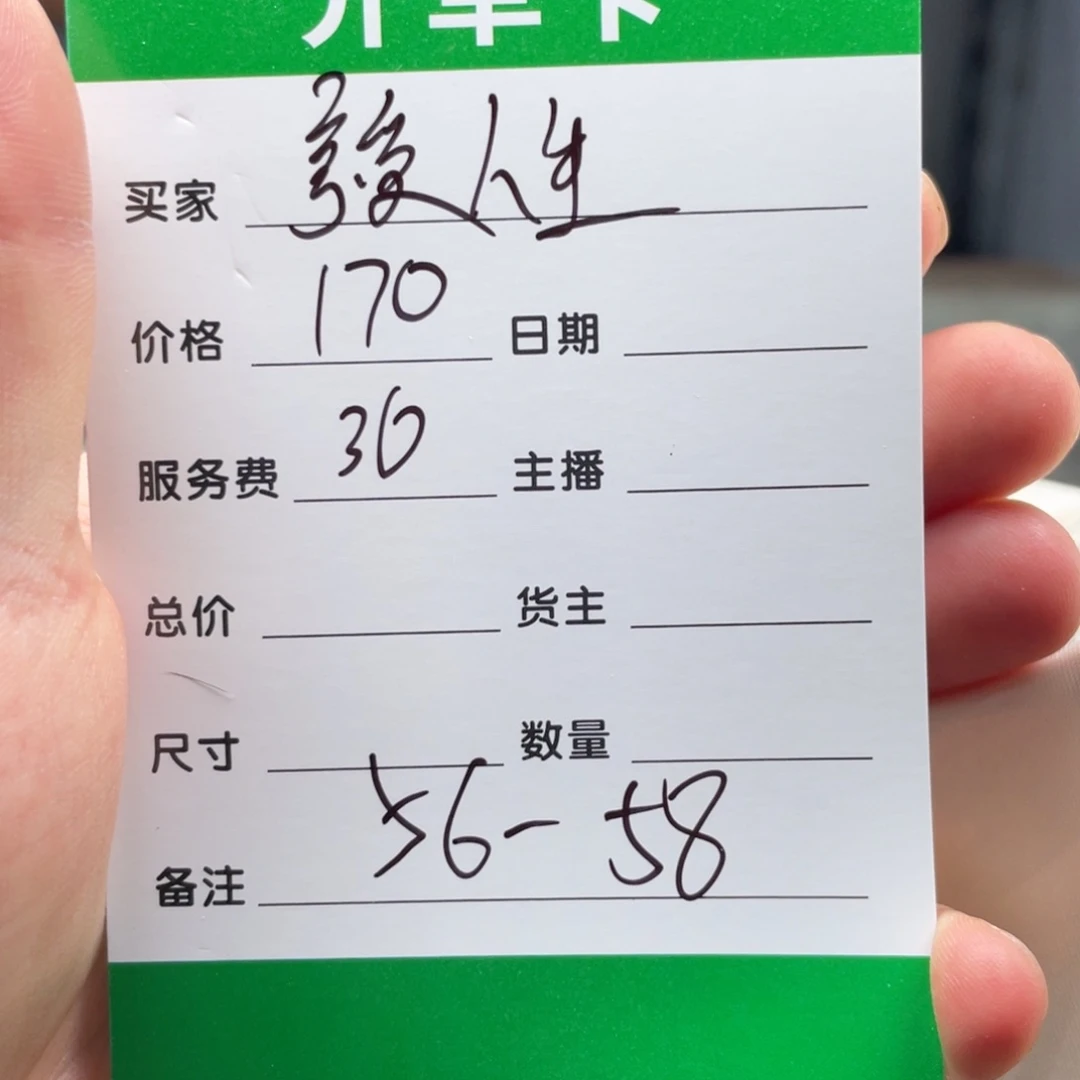 开单卡
买家 人生
价格 170 日期
服务费 30 主播
总价 货主
尺寸 数量
备注 56-58